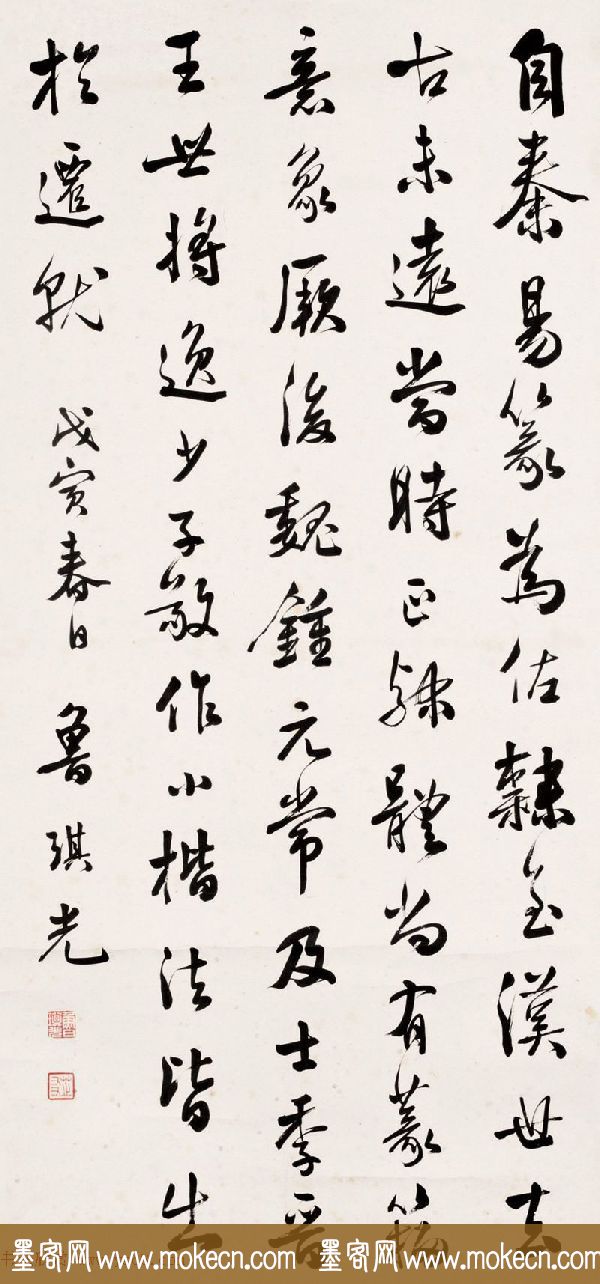 自秦易篆為佐隸至漢世去
古未遠當時正隸體尚有篆籀
意象厥後魏鍾元常及士季晉
王世將逸少子敬作小楷法皆出
於遷就 戊寅春日 魯琪光
墨客网 www.mokecn.com 墨客网 www.mokecn.com